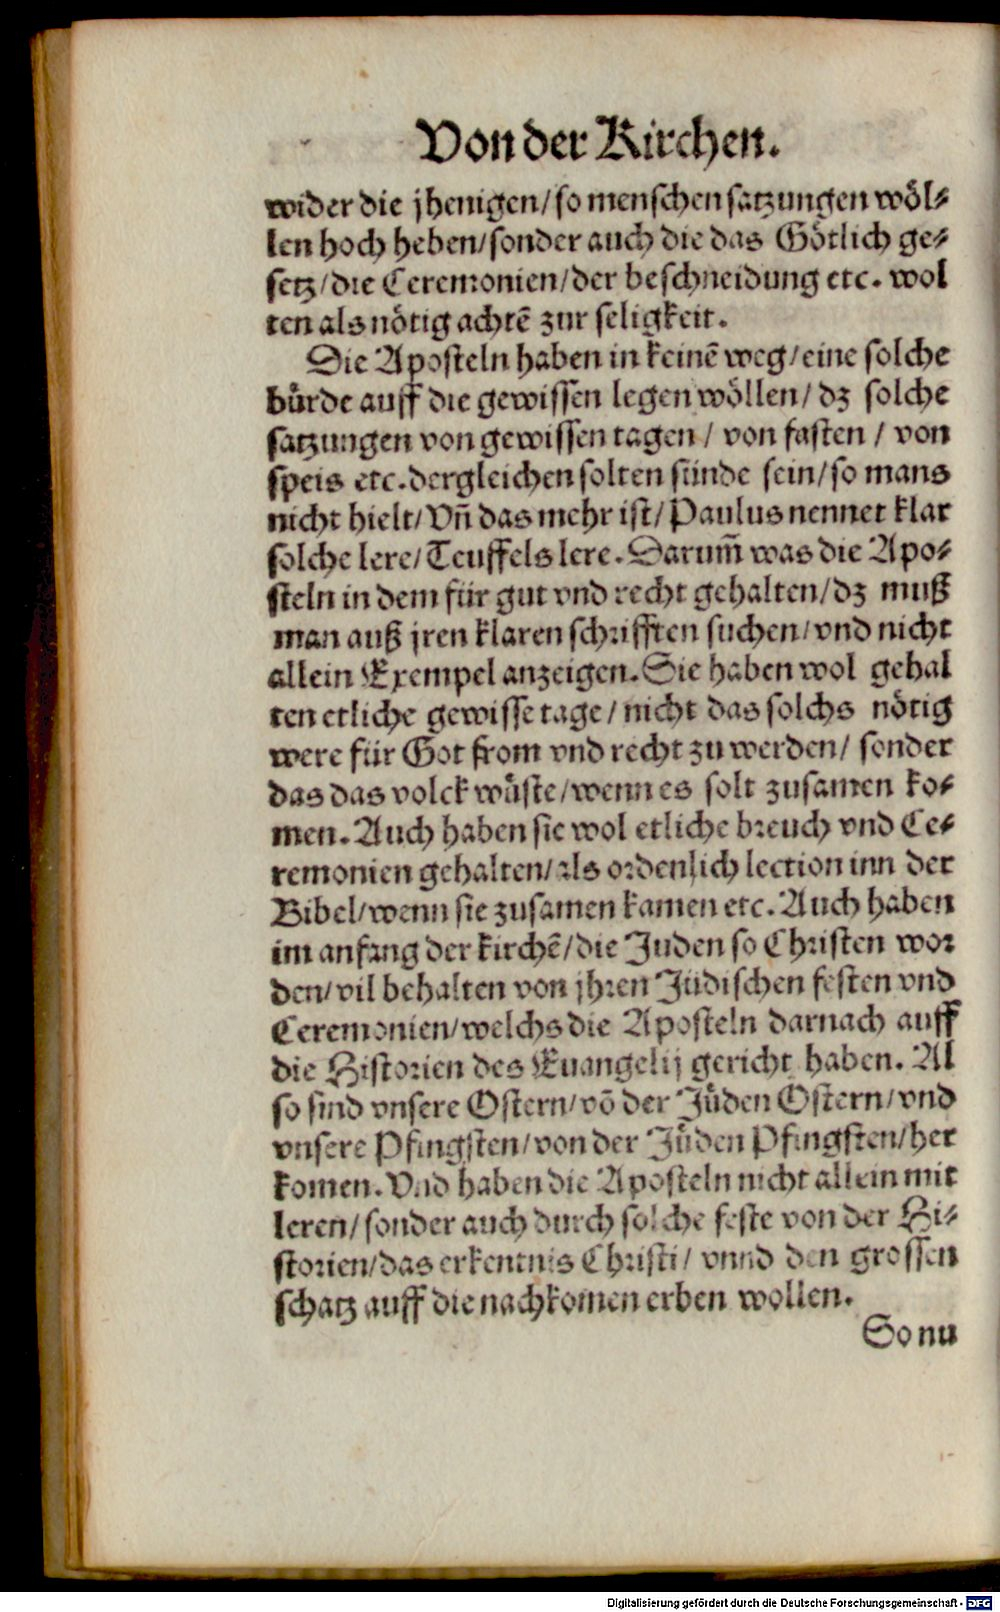 Von der Kirchen.
wider die jhenigen/so menschen satzungen wöl⸗
len hoch heben/sonder auch die das Götlich ge⸗
setz/die Ceremonien/der beschneidung etc. wol
ten als nötig achtē zur seligkeit.
Die Aposteln haben in keinē weg/eine solche
bürde auff die gewissen legen wöllen/dz solche
satzungen von gewissen tagen/ von fasten / von
speis etc. dergleichen solten sünde sein/so mans
nicht hielt/Vñ das mehr ist/Paulus nennet klar
solche lere/Teuffels lere. Darum̃ was die Apo⸗
steln in dem für gut vnd recht gehalten/dz muß
man auß jren klaren schrifften suchen/vnd nicht
allein Exempel anzeigen. Sie haben wol gehal
ten etliche gewisse tage/nicht das solchs nötig
were für Got from vnd recht zu werden/ sonder
das das volck wüste/wenn es solt zusamen ko⸗
men. Auch haben sie wol etliche breuch vnd Ce⸗
remonien gehalten/als ordenlich lection inn der
Bibel/wenn sie zusamen kamen etc. Auch haben
im anfang der kirchē/die Juden so Christen wor
den/vil behalten von jhren Jüdischen festen vnd
Ceremonien/welchs die Aposteln darnach auff
die Historien des Euangelij gericht haben. Al
so sind vnsere Ostern/vō der Jüden Ostern/vnd
vnsere Pfingsten/von der Jüden Pfingsten/her
komen. Vnd haben die Aposteln nicht allein mit
leren/sonder auch durch solche feste von der Hi⸗
storien/das erkentnis Christi/ vnnd den grossen
schatz auff die nachkomen erben wollen.
So nu
Digitalisierung gefördert durch die Deutsche Forschungsgemeinschaft - DFG